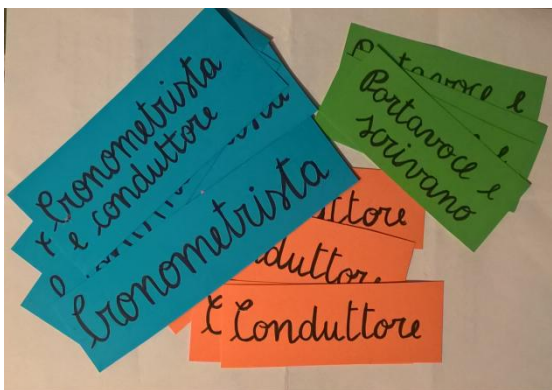 Cronometrista
e conduttore
Cronometrista
Portavoce e
Portavoce e
scrivano
ttore
duttore
Conduttore